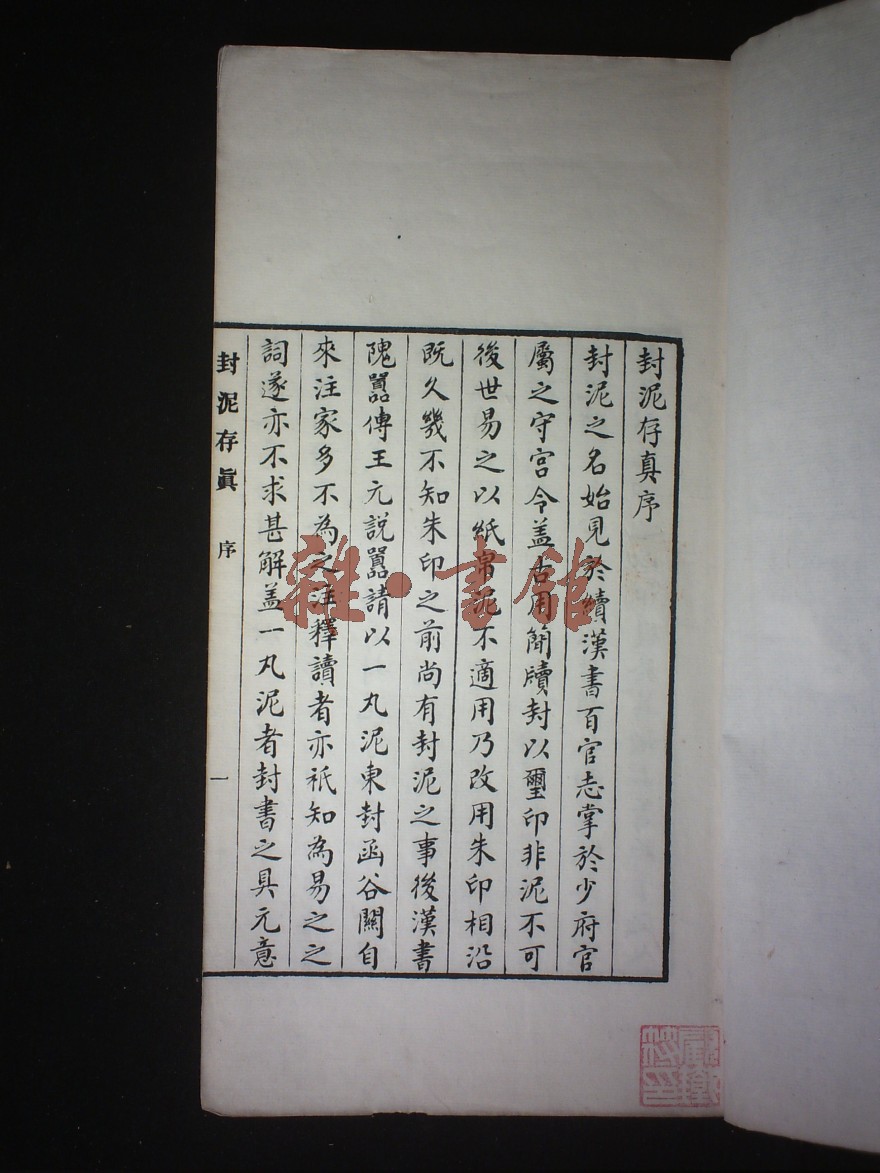 封泥存真序
封泥之名始見於續漢書百官志掌於少府官
屬之守宮令盖古用簡牘封以璽印非泥不可
後世易之以紙帛泥不適用乃改用朱印相沿
既久幾不知朱印之前尚有封泥之事後漢書
隗囂傳王元說囂請以一丸泥東封函谷關自
來注家多不為之注釋讀者亦祇知為易之之
詞遂亦不求甚解盖一丸泥者封書之具元意
封泥存眞 序 一
雜·書館